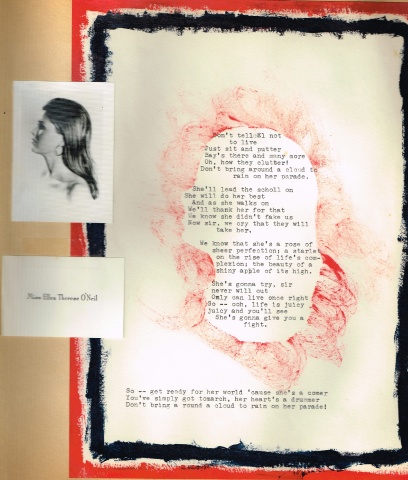 Miss Ellen Therese O'Neil
Don't tell Kl not
to live
Just sit and putter
Hay's there and many more
Oh, how they clutter!
Don't bring around a cloud to
rain on her parade.
She'll lead the scholl on
She will do her best
And as she walks on
We'll thank her for that
We know she didn't fake us
Now sir, we cry that they will
take her.
We know that she's a rose of
sheer perfection; a starlet
on the rise of life's com-
plexion; the beauty of a
shiny apple of its high.
She's gonna try, sir
never will out
Omly can live once right
So -- ooh, life is juicy
juicy and you'll see
She's gonna give you a
fight.
So -- get ready for her world 'cause she's a comer
You've simply got tomarch, her heart's a drummer
Don't bring a round a cloud to rain on her parade!